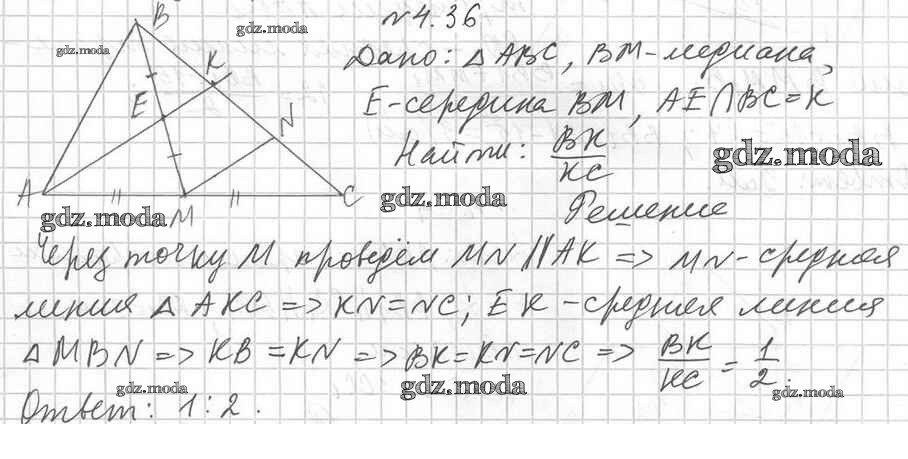 №4.36
B
gdz.moda
gdz.moda
Дано: △ABC, BM-медиана,
K
E-середина BM, AE∩BC=K
E
N
Найти: BK/KC
gdz.moda
A
M
C
gdz.moda
gdz.moda
Решение
Через точку M проведём MN||AK => MN-средняя
линия △AKC => KN=NC; EK-средняя линия
△MBN => KB=KN => BK=KN=NC => BK/KC = 1/2.
gdz.moda
gdz.moda
gdz.moda
Ответ: 1:2.